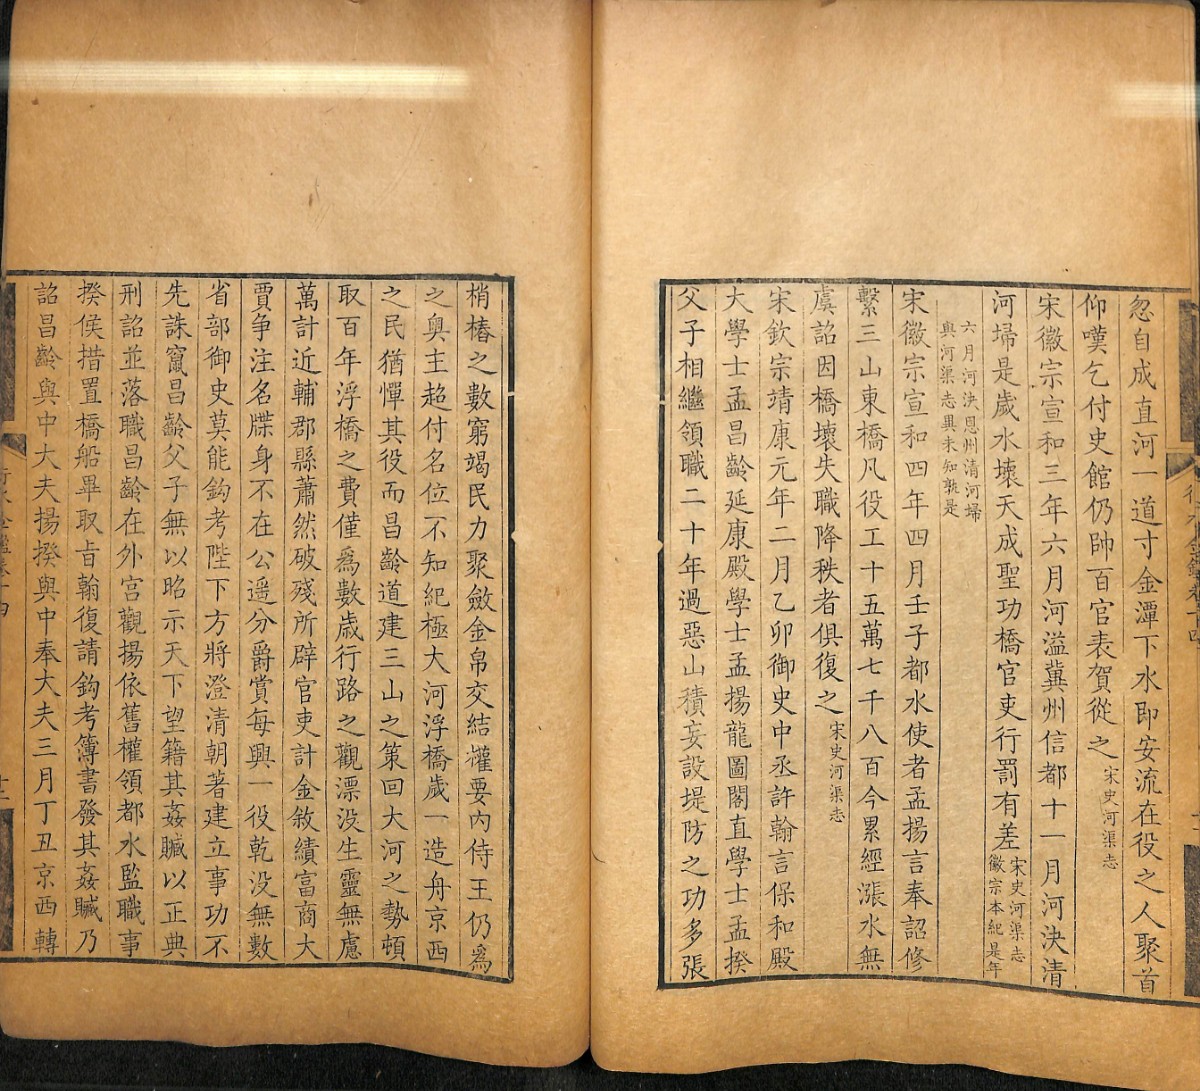 忽自成直河一道寸金潭下水即安流在役之人聚首
仰嘆乞付史館仍帥百官表賀從之宋史河渠志
宋徽宗宣和三年六月河溢冀州信都十一月河決清
河埽是歲水壞天成聖功橋官吏行罰有差宋史河渠志
徽宗本紀是年
六月河決恩州清河埽
與河渠志異未知孰是
宋徽宗宣和四年四月壬子都水使者孟揚言奉詔修
繫三山東橋凡役工十五萬七千八百今累經漲水無
虞詔因橋壞失職降秩者俱復之宋史河渠志
宋欽宗靖康元年二月乙卯御史中丞許翰言保和殿
大學士孟昌齡延康殿學士孟揚龍圖閣直學士孟揆
父子相繼領職二十年過惡山積妄設堤防之功多張
梢樁之數窮竭民力聚斂金帛交結權要內侍王仍爲
之奧主超付名位不知紀極大河浮橋歲一造舟京西
之民猶憚其役而昌齡道建三山之策回大河之勢頓
取百年浮橋之費僅爲數歲行路之觀漂没生靈無慮
萬計近輔郡縣蕭然破殘所辟官吏計金敘績富商大
賈争注名牒身不在公遥分爵賞每興一役乾没無數
省部御史莫能鈎考陛下方將澄清朝著建立事功不
先誅竄昌齡父子無以昭示天下望籍其姦贓以正典
刑詔並落職昌齡在外宫觀揚依舊權領都水監職事
揆侯措置橋船畢取旨翰復請鈎考簿書發其姦贓乃
詔昌齡與中大夫揚揆與中奉大夫三月丁丑京西轉